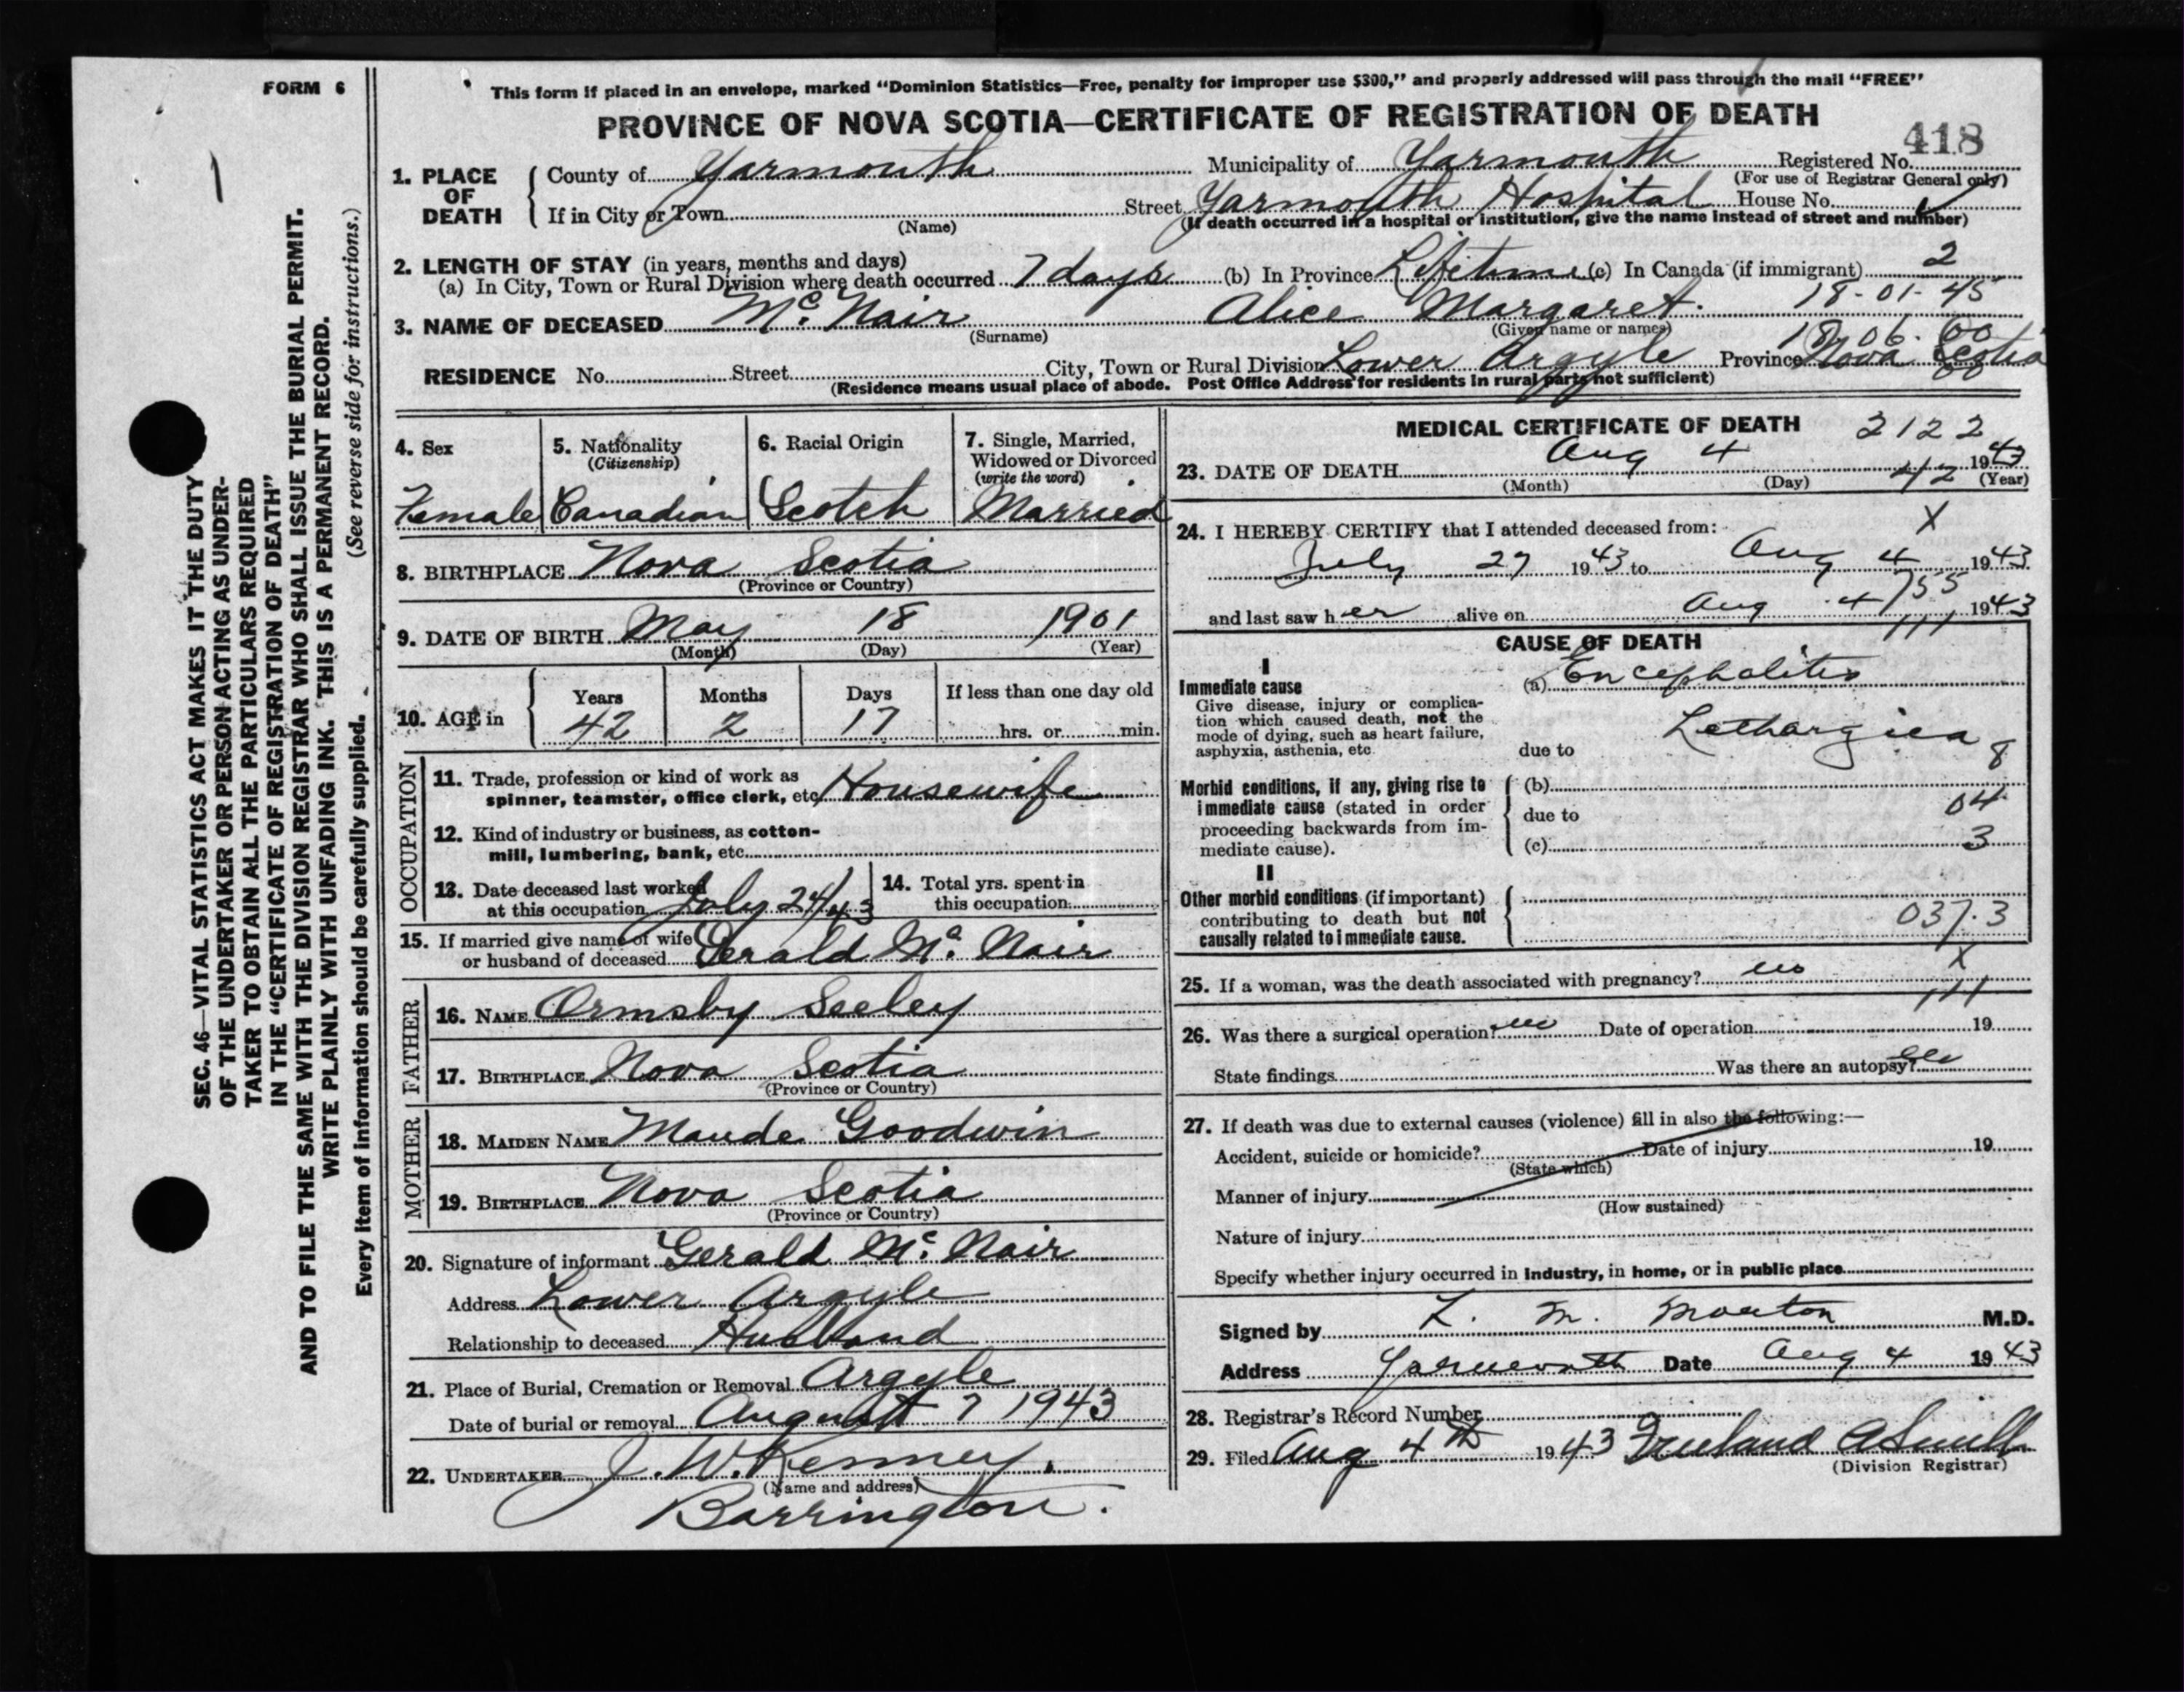 FORM 6
This form if placed in an envelope, marked "Dominion Statistics—Free, penalty for improper use $300," and properly addressed will pass through the mail "FREE"
PROVINCE OF NOVA SCOTIA—CERTIFICATE OF REGISTRATION OF DEATH
418
1
1. PLACE OF DEATH
County of Yarmouth Municipality of Yarmouth Registered No.
(For use of Registrar General only)
If in City or Town Street Yarmouth Hospital House No.
(Name) (If death occurred in a hospital or institution, give the name instead of street and number)
2. LENGTH OF STAY (in years, months and days)
(a) In City, Town or Rural Division where death occurred 7 days (b) In Province Lifetime (c) In Canada (if immigrant) 2
18-01-45
3. NAME OF DECEASED McNair Alice Margaret.
(Surname) (Given name or names)
18 06. 00
RESIDENCE No. Street City, Town or Rural Division Lower Argyle Province Nova Scotia
(Residence means usual place of abode. Post Office Address for residents in rural parts not sufficient)
SEC. 46—VITAL STATISTICS ACT MAKES IT THE DUTY
OF THE UNDERTAKER OR PERSON ACTING AS UNDER-
TAKER TO OBTAIN ALL THE PARTICULARS REQUIRED
IN THE "CERTIFICATE OF REGISTRATION OF DEATH"
AND TO FILE THE SAME WITH THE DIVISION REGISTRAR WHO SHALL ISSUE THE BURIAL PERMIT.
WRITE PLAINLY WITH UNFADING INK. THIS IS A PERMANENT RECORD.
Every item of information should be carefully supplied. (See reverse side for instructions.)
4. Sex
Female
5. Nationality
(Citizenship)
Canadian
6. Racial Origin
Scotch
7. Single, Married,
Widowed or Divorced
(write the word)
Married
8. BIRTHPLACE Nova Scotia
(Province or Country)
9. DATE OF BIRTH May 18 1901
(Month) (Day) (Year)
10. AGE in
Years Months Days If less than one day old
42 2 17 hrs. or min.
OCCUPATION
11. Trade, profession or kind of work as
spinner, teamster, office clerk, etc Housewife
12. Kind of industry or business, as cotton-
mill, lumbering, bank, etc.
13. Date deceased last worked
at this occupation July 24/43
14. Total yrs. spent in
this occupation
15. If married give name of wife
or husband of deceased Gerald McNair
FATHER
16. NAME Ormsby Seeley
17. BIRTHPLACE Nova Scotia
(Province or Country)
MOTHER
18. MAIDEN NAME Maude Goodwin
19. BIRTHPLACE Nova Scotia
(Province or Country)
20. Signature of informant Gerald McNair
Address Lower Argyle
Relationship to deceased Husband
21. Place of Burial, Cremation or Removal Argyle
Date of burial or removal August 7 1943
22. UNDERTAKER J. W. Kenney.
(Name and address)
Barrington.
MEDICAL CERTIFICATE OF DEATH 2122
23. DATE OF DEATH Aug 4 1943
(Month) (Day) (Year)
42
24. I HEREBY CERTIFY that I attended deceased from: X
July 27 1943 to Aug 4 1943
755
and last saw her alive on Aug 4 1943
CAUSE OF DEATH
I
Immediate cause
Give disease, injury or complica-
tion which caused death, not the
mode of dying, such as heart failure,
asphyxia, asthenia, etc
(a) Encephalitis
Lethargica
due to 8
Morbid conditions, if any, giving rise to
immediate cause (stated in order
proceeding backwards from im-
mediate cause).
(b)
due to 04
(c) 3
II
Other morbid conditions (if important)
contributing to death but not
causally related to immediate cause.
037.3
25. If a woman, was the death associated with pregnancy? no X
26. Was there a surgical operation? no Date of operation 19
State findings Was there an autopsy?
27. If death was due to external causes (violence) fill in also the following:—
Accident, suicide or homicide? Date of injury 19
(State which)
Manner of injury
(How sustained)
Nature of injury
Specify whether injury occurred in industry, in home, or in public place
Signed by L. M. Morton M.D.
Address Yarmouth Date Aug 4 1943
28. Registrar's Record Number
29. Filed Aug 4th 1943
(Division Registrar)